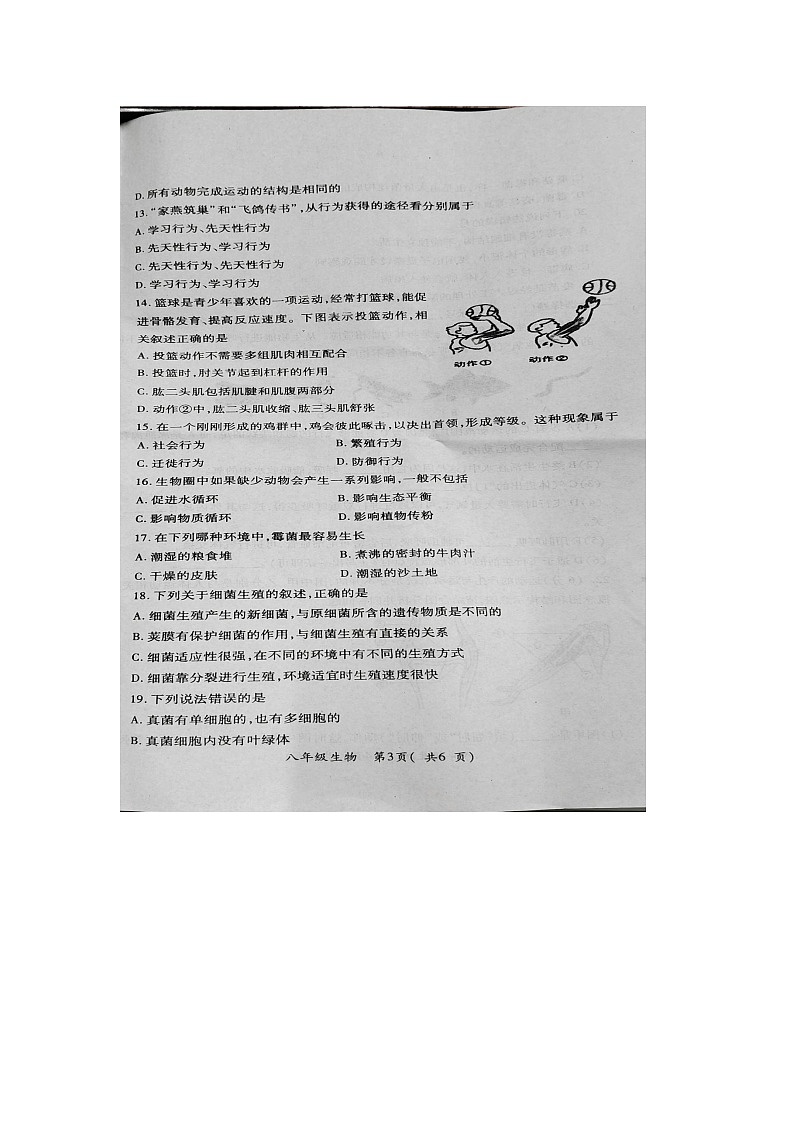 D.所有动物完成运动的结构是相同的
13.“家燕筑巢”和“飞鸽传书”,从行为获得的途径看分别属于
A.学习行为、先天性行为
B.先天性行为、学习行为
C.先天性行为、先天性行为
D.学习行为、学习行为
14.篮球是青少年喜欢的一项运动,经常打篮球,能促
进骨骼发育、提高反应速度。下图表示投篮动作,相
关叙述正确的是
A.投篮动作不需要多组肌肉相互配合
B.投篮时,肘关节起到杠杆的作用
C.肱二头肌包括肌腱和肌腹两部分
D.动作②中,肱二头肌收缩、肱三头肌舒张
动作① 动作②
15.在一个刚刚形成的鸡群中,鸡会彼此啄击,以决出首领,形成等级。这种现象属于
A.社会行为 B.繁殖行为
C.迁徙行为 D.防御行为
16.生物圈中如果缺少动物会产生一系列影响,一般不包括
A.促进水循环 B.影响生态平衡
C.影响物质循环 D.影响植物传粉
17.在下列哪种环境中,霉菌最容易生长
A.潮湿的粮食堆 B.煮沸的密封的牛肉汁
C.干燥的皮肤 D.潮湿的沙土地
18.下列关于细菌生殖的叙述,正确的是
A.细菌生殖产生的新细菌,与原细菌所含的遗传物质是不同的
B.荚膜有保护细菌的作用,与细菌生殖有直接的关系
C.细菌适应性很强,在不同的环境中有不同的生殖方式
D.细菌靠分裂进行生殖,环境适宜时生殖速度很快
19.下列说法错误的是
A.真菌有单细胞的,也有多细胞的
B.真菌细胞内没有叶绿体
八年级生物 第3页( 共6 页)